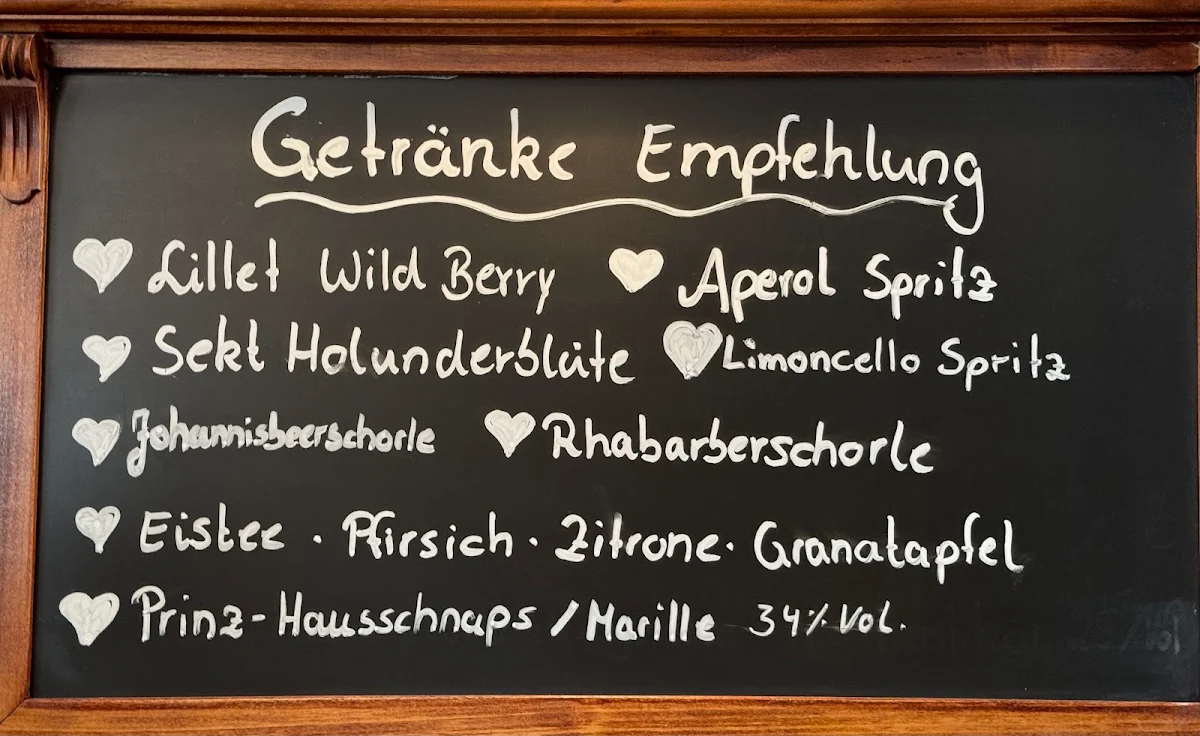 Getränke Empfehlung
Lillet Wild Berry Aperol Spritz
Sekt Holunderblüte Limoncello Spritz
Johannisbeerschorle Rhabarberschorle
Eistee · Pfirsich · Zitrone · Granatapfel
Prinz-Hausschnaps / Marille 34% Vol.